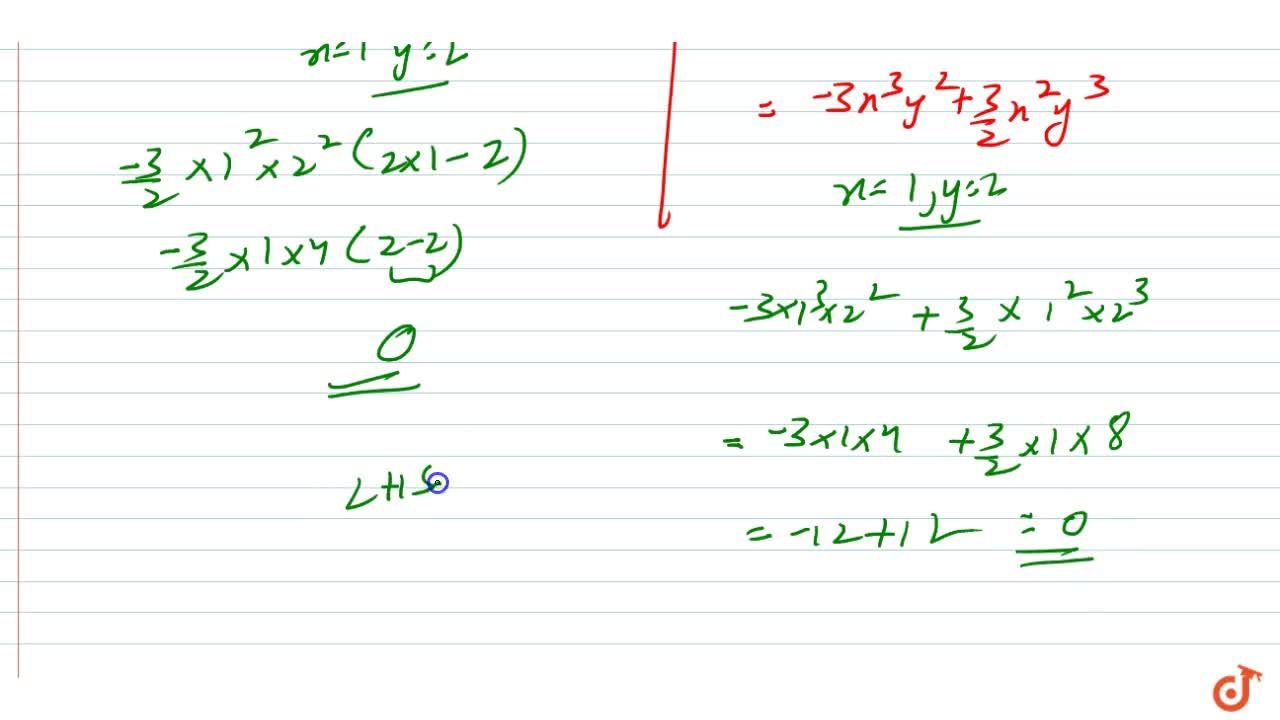 x=1 y=2
-3/2 × 1² × 2² (2×1-2)
-3/2 × 1 × 4 (2-2)
0
LHS
= -3x³y² + 3/2 x²y³
x=1, y=2
-3×1³×2² + 3/2 × 1² × 2³
= -3×1×4 + 3/2 × 1 × 8
= -12+12 = 0